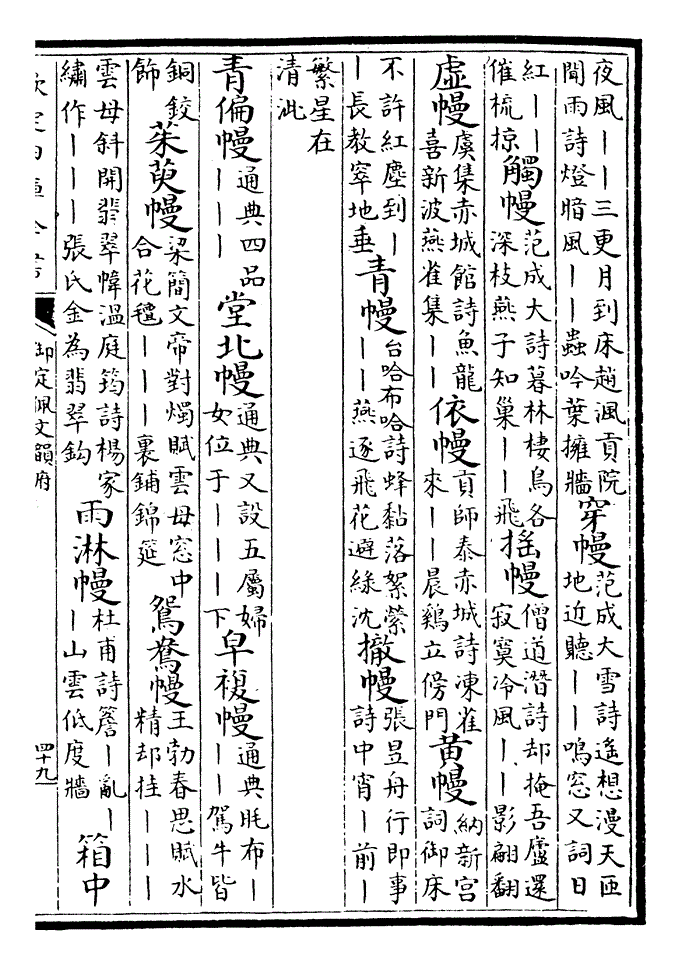 夜風丨丨三更月到床趙渢貢院
聞雨詩燈暗風丨丨蟲吟葉擁牆
穿幔
范成大雪詩遥想漫天匝
地近聽丨丨鳴窓又詞日
紅丨丨
催梳掠
觸幔
范成大詩暮林棲鳥各
深枝燕子知巢丨丨飛
摇幔
僧道潛詩却掩吾廬還
寂寞冷風丨丨影翩翻
虛幔
虞集赤城館詩魚龍
喜新波燕雀集丨丨
依幔
貢師泰赤城詩凍雀
來丨丨晨鷄立傍門
黄幔
納新宫
詞御床
不許紅塵到丨
丨長教窣地垂
青幔
台哈布哈詩蜂黏落絮縈
丨丨燕逐飛花避綠沈
撤幔
張昱舟行即事
詩中宵丨前丨
繁星在
清泚
青偏幔
通典四品
丨丨丨
堂北幔
通典又設五屬婦
女位于丨丨丨下
皁複幔
通典毦布丨
丨丨駕牛皆
銅鉸
飾
茱萸幔
梁簡文帝對燭賦雲母窓中
合花氊丨丨丨裏鋪錦筵
鴛鴦幔
王勃春思賦水
精却挂丨丨丨
雲母斜開翡翠幃溫庭筠詩楊家
繡作丨丨丨張氏金為翡翠鈎
雨淋幔
杜甫詩簷丨亂丨
丨山雲低度牆
箱中
欽定四庫全書
御定佩文韻府
四十九